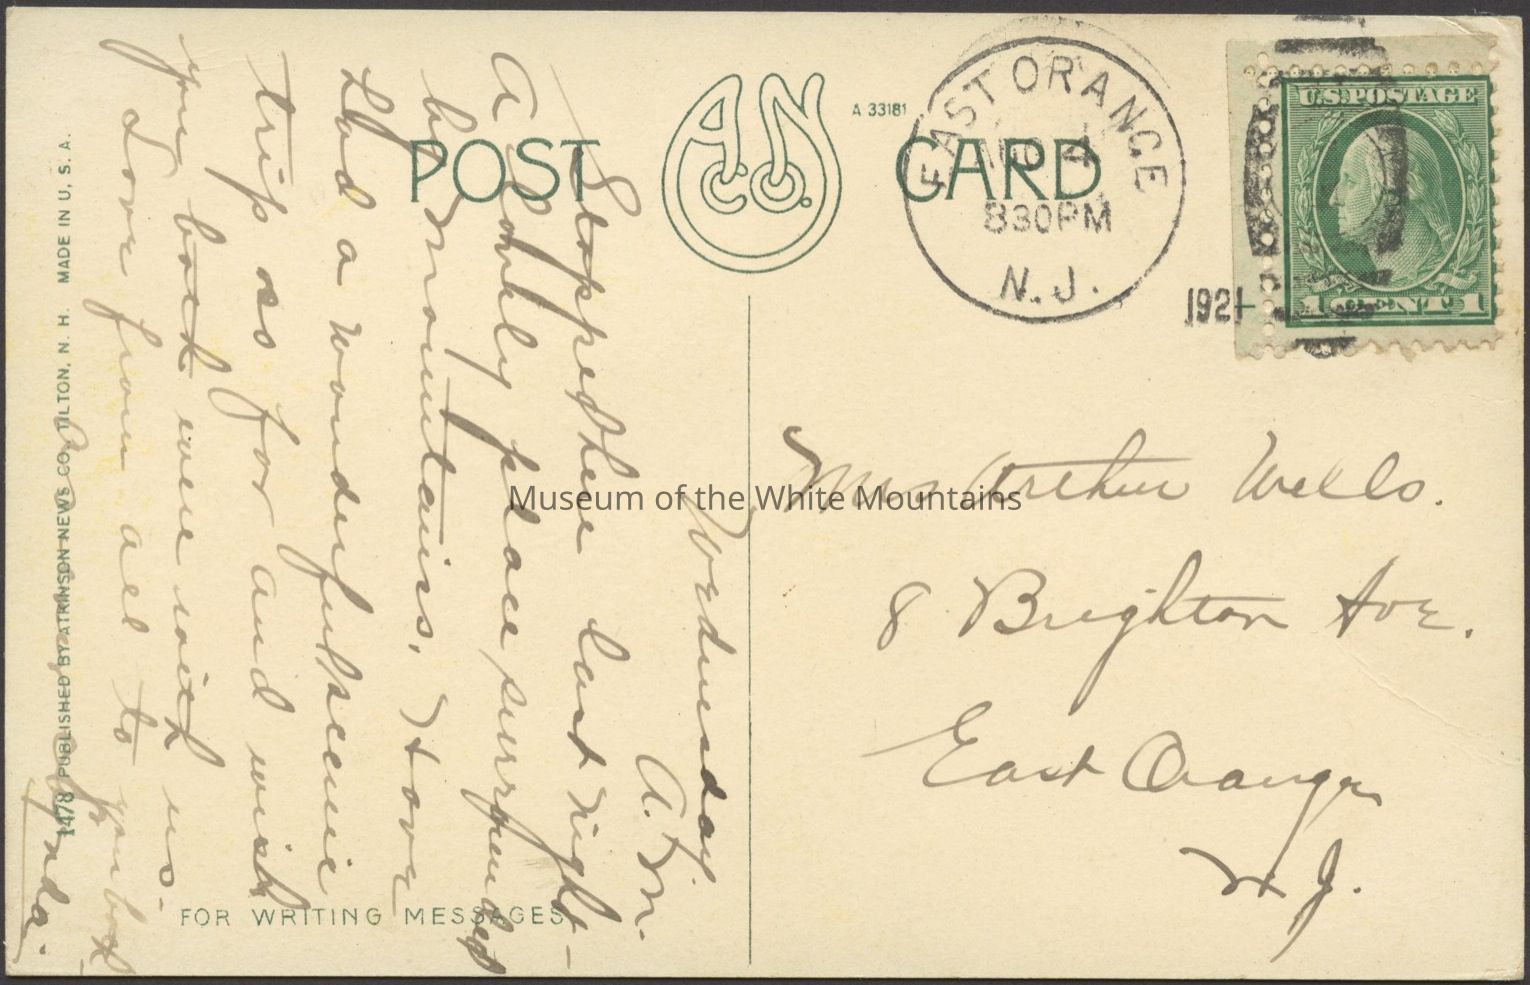 POST CARD
A.N. Co.
A 33181
EAST ORANGE
830PM
N.J.
1921
U.S. POSTAGE
1 CENT 1
Wednesday
A.M.
Stopped here last night -
A lovely place surrounded
by mountains. Have
had a wonderful scenic
trip so far and wish
you both were with us.
Love from all to you both
Mrs Arthur Wells.
8 Brighton Ave.
East Orange
N J.
FOR WRITING MESSAGES
1478 PUBLISHED BY ATKINSON NEWS CO., TILTON, N. H. MADE IN U. S. A.
Museum of the White Mountains